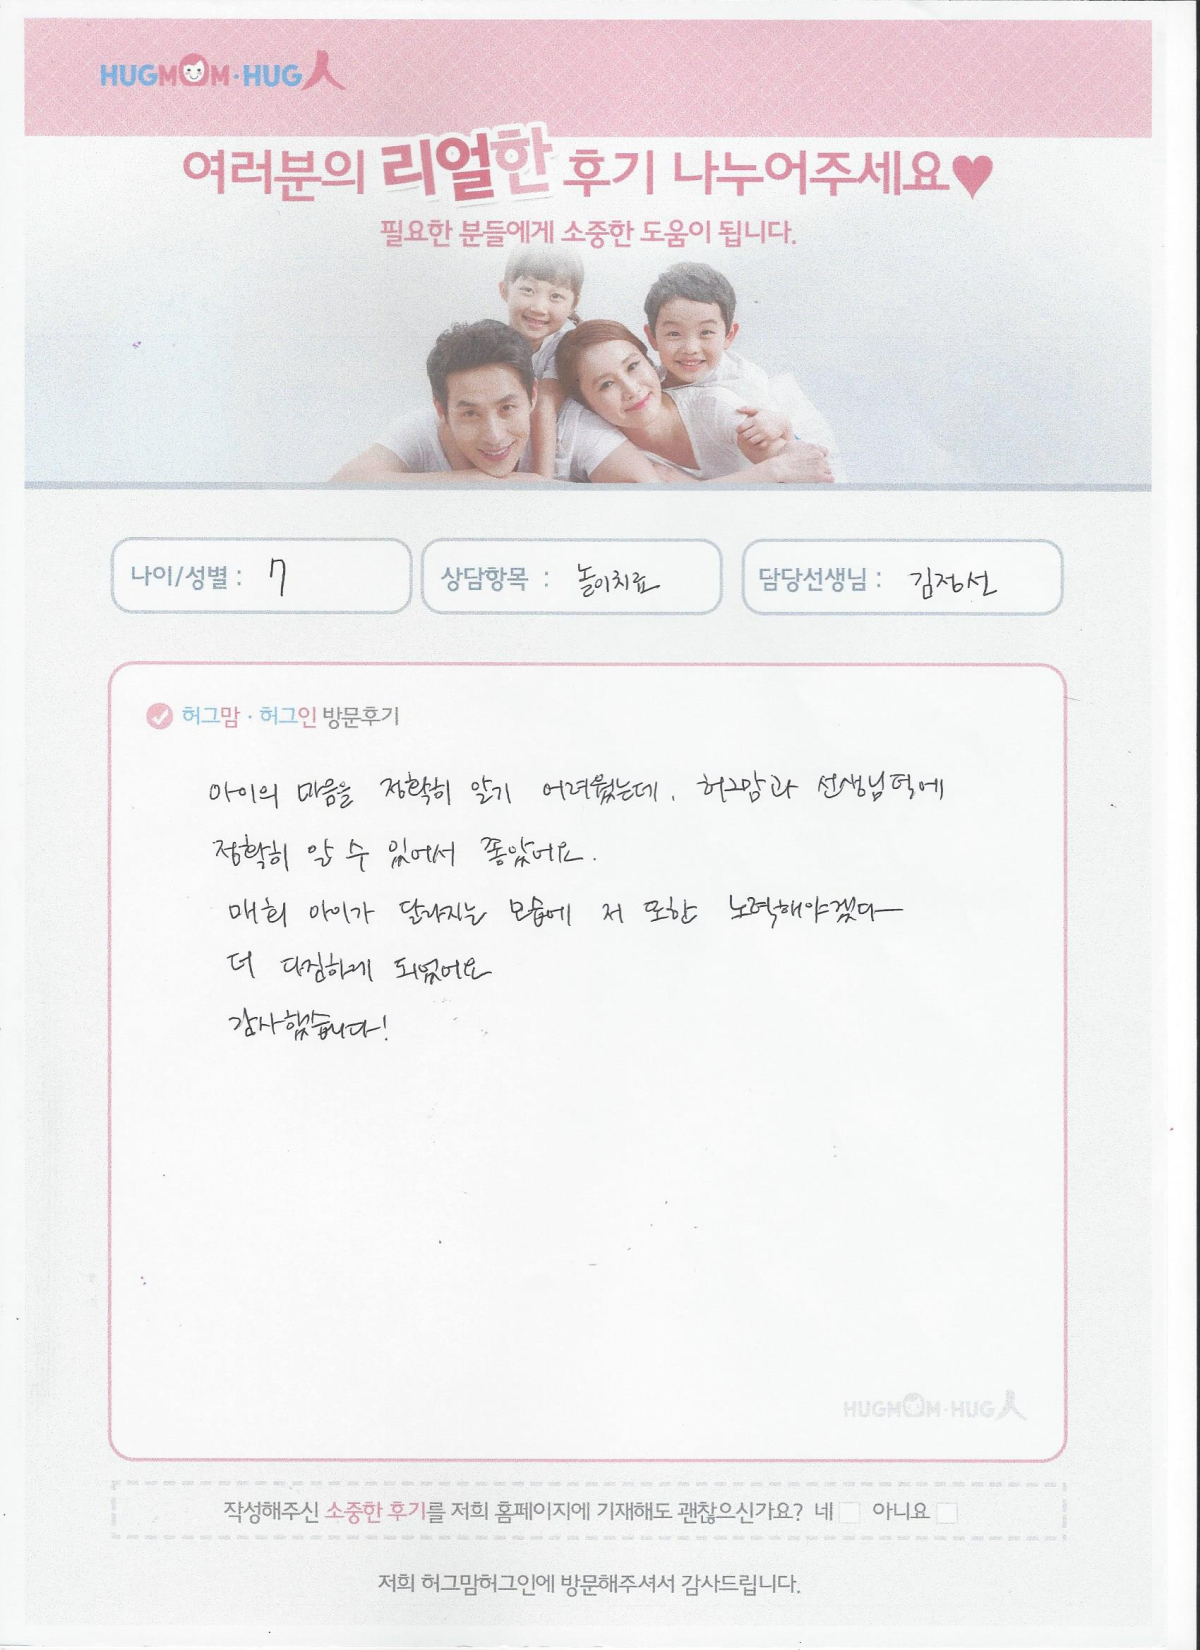 HUGMOM·HUG人
여러분의 리얼한 후기 나누어주세요♥
필요한 분들에게 소중한 도움이 됩니다.
나이/성별 : 7
상담항목 : 놀이치료
담당선생님 : 김정선
허그맘·허그인 방문후기
아이의 마음을 정확히 알기 어려웠는데, 허그맘과 선생님덕에
정확히 알 수 있어서 좋았어요.
매회 아이가 달라지는 모습에 저 또한 노력해야겠다
더 다짐하게 되었어요
감사했습니다!
HUGMOM·HUG人
작성해주신 소중한 후기를 저희 홈페이지에 기재해도 괜찮으신가요? 네 □ 아니요 □
저희 허그맘허그인에 방문해주셔서 감사드립니다.